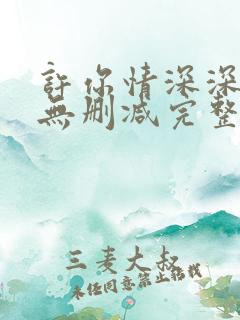 許你情深深
無删减完整
三麦大叔
未经同意禁止转载